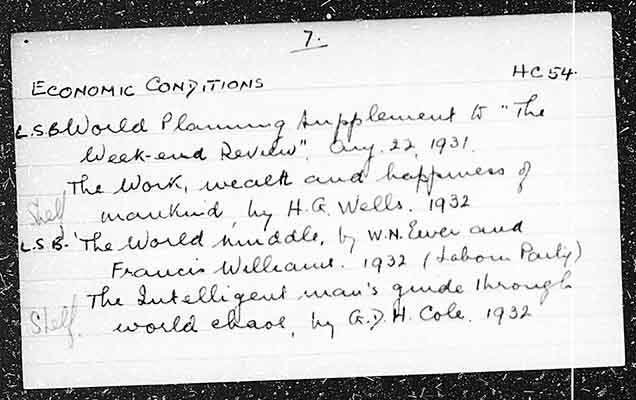 7.
ECONOMIC CONDITIONS HC 54.
L.S.B World Planning Supplement to "The
Week-end Review", Aug. 22, 1931.
The Work, wealth and happiness of
Shelf mankind, by H.G. Wells. 1932
L.S.B. 'The World muddle, by W.N. Ewer and
Francis Williams. 1932 (Labour Party)
The Intelligent man's guide through
Shelf world chaos, by G.D.H. Cole. 1932